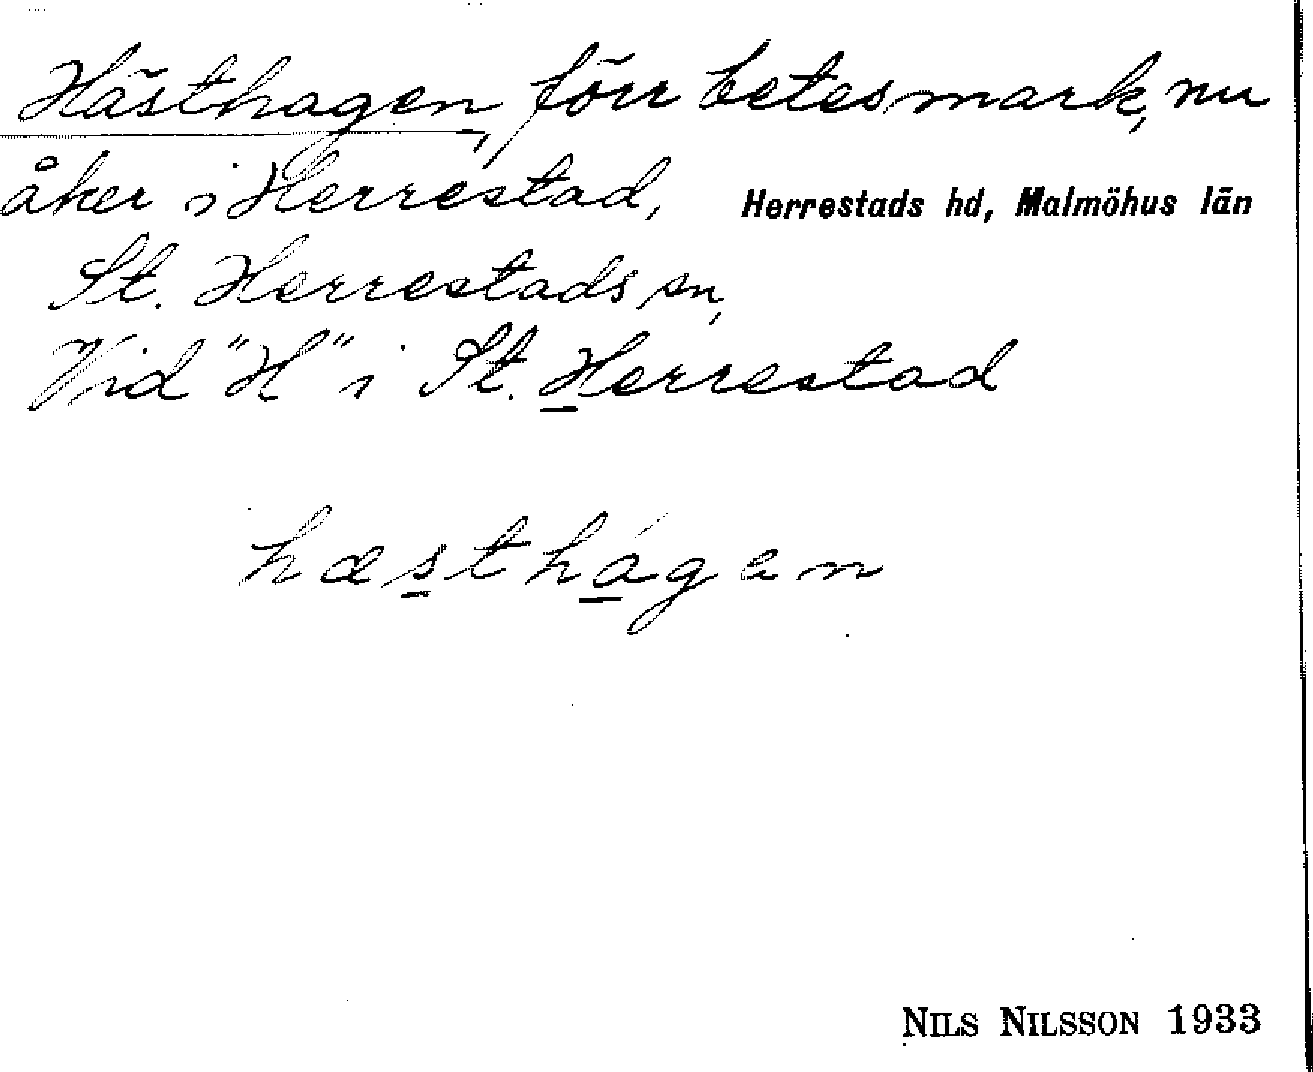 Hästhagen, förr betesmark, nu
åker i Herrestad, Herrestads hd, Malmöhus län
St. Herrestads sn,
Vid "H" i St. Herrestad
hæsthágen
NILS NILSSON 1933